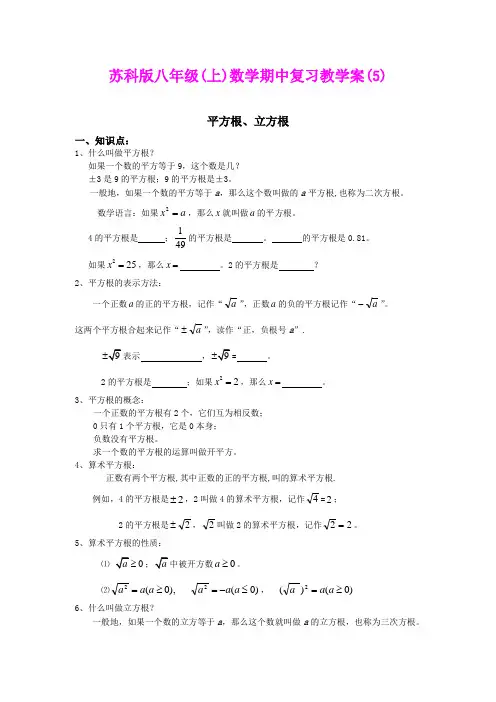 苏科版八年级(上)数学期中复习教学案(5)
平方根、立方根
一、知识点：
1、什么叫做平方根？
如果一个数的平方等于9，这个数是几？
±3是9的平方根；9的平方根是±3。
一般地，如果一个数的平方等于a，那么这个数叫做的a平方根,也称为二次方根。
数学语言：如果x²=a，那么x就叫做a的平方根。
4的平方根是 ；1/49的平方根是 。 的平方根是0.81。
如果x²=25，那么x= 。2的平方根是 ？
2、平方根的表示方法：
一个正数a的正的平方根，记作“√a”，正数a的负的平方根记作“−√a”。
这两个平方根合起来记作“±√a”，读作“正，负根号a”.
±√9表示 ，±√9= 。
2的平方根是 ；如果x²=2，那么x= 。
3、平方根的概念：
一个正数的平方根有2个，它们互为相反数；
0只有1个平方根，它是0本身；
负数没有平方根。
求一个数的平方根的运算叫做开平方。
4、算术平方根：
正数有两个平方根,其中正数的正的平方根,叫的算术平方根.
例如，4的平方根是±2，2叫做4的算术平方根，记作√4=2；
2的平方根是±√2，√2叫做2的算术平方根，记作√2=2。
5、算术平方根的性质：
⑴ √a≥0；√a中被开方数a≥0。
⑵√a²=a(a≥0)， √a²=−a(a≤0)， (√a)²=a(a≥0)
6、什么叫做立方根？
一般地，如果一个数的立方等于a，那么这个数就叫做a的立方根，也称为三次方根。